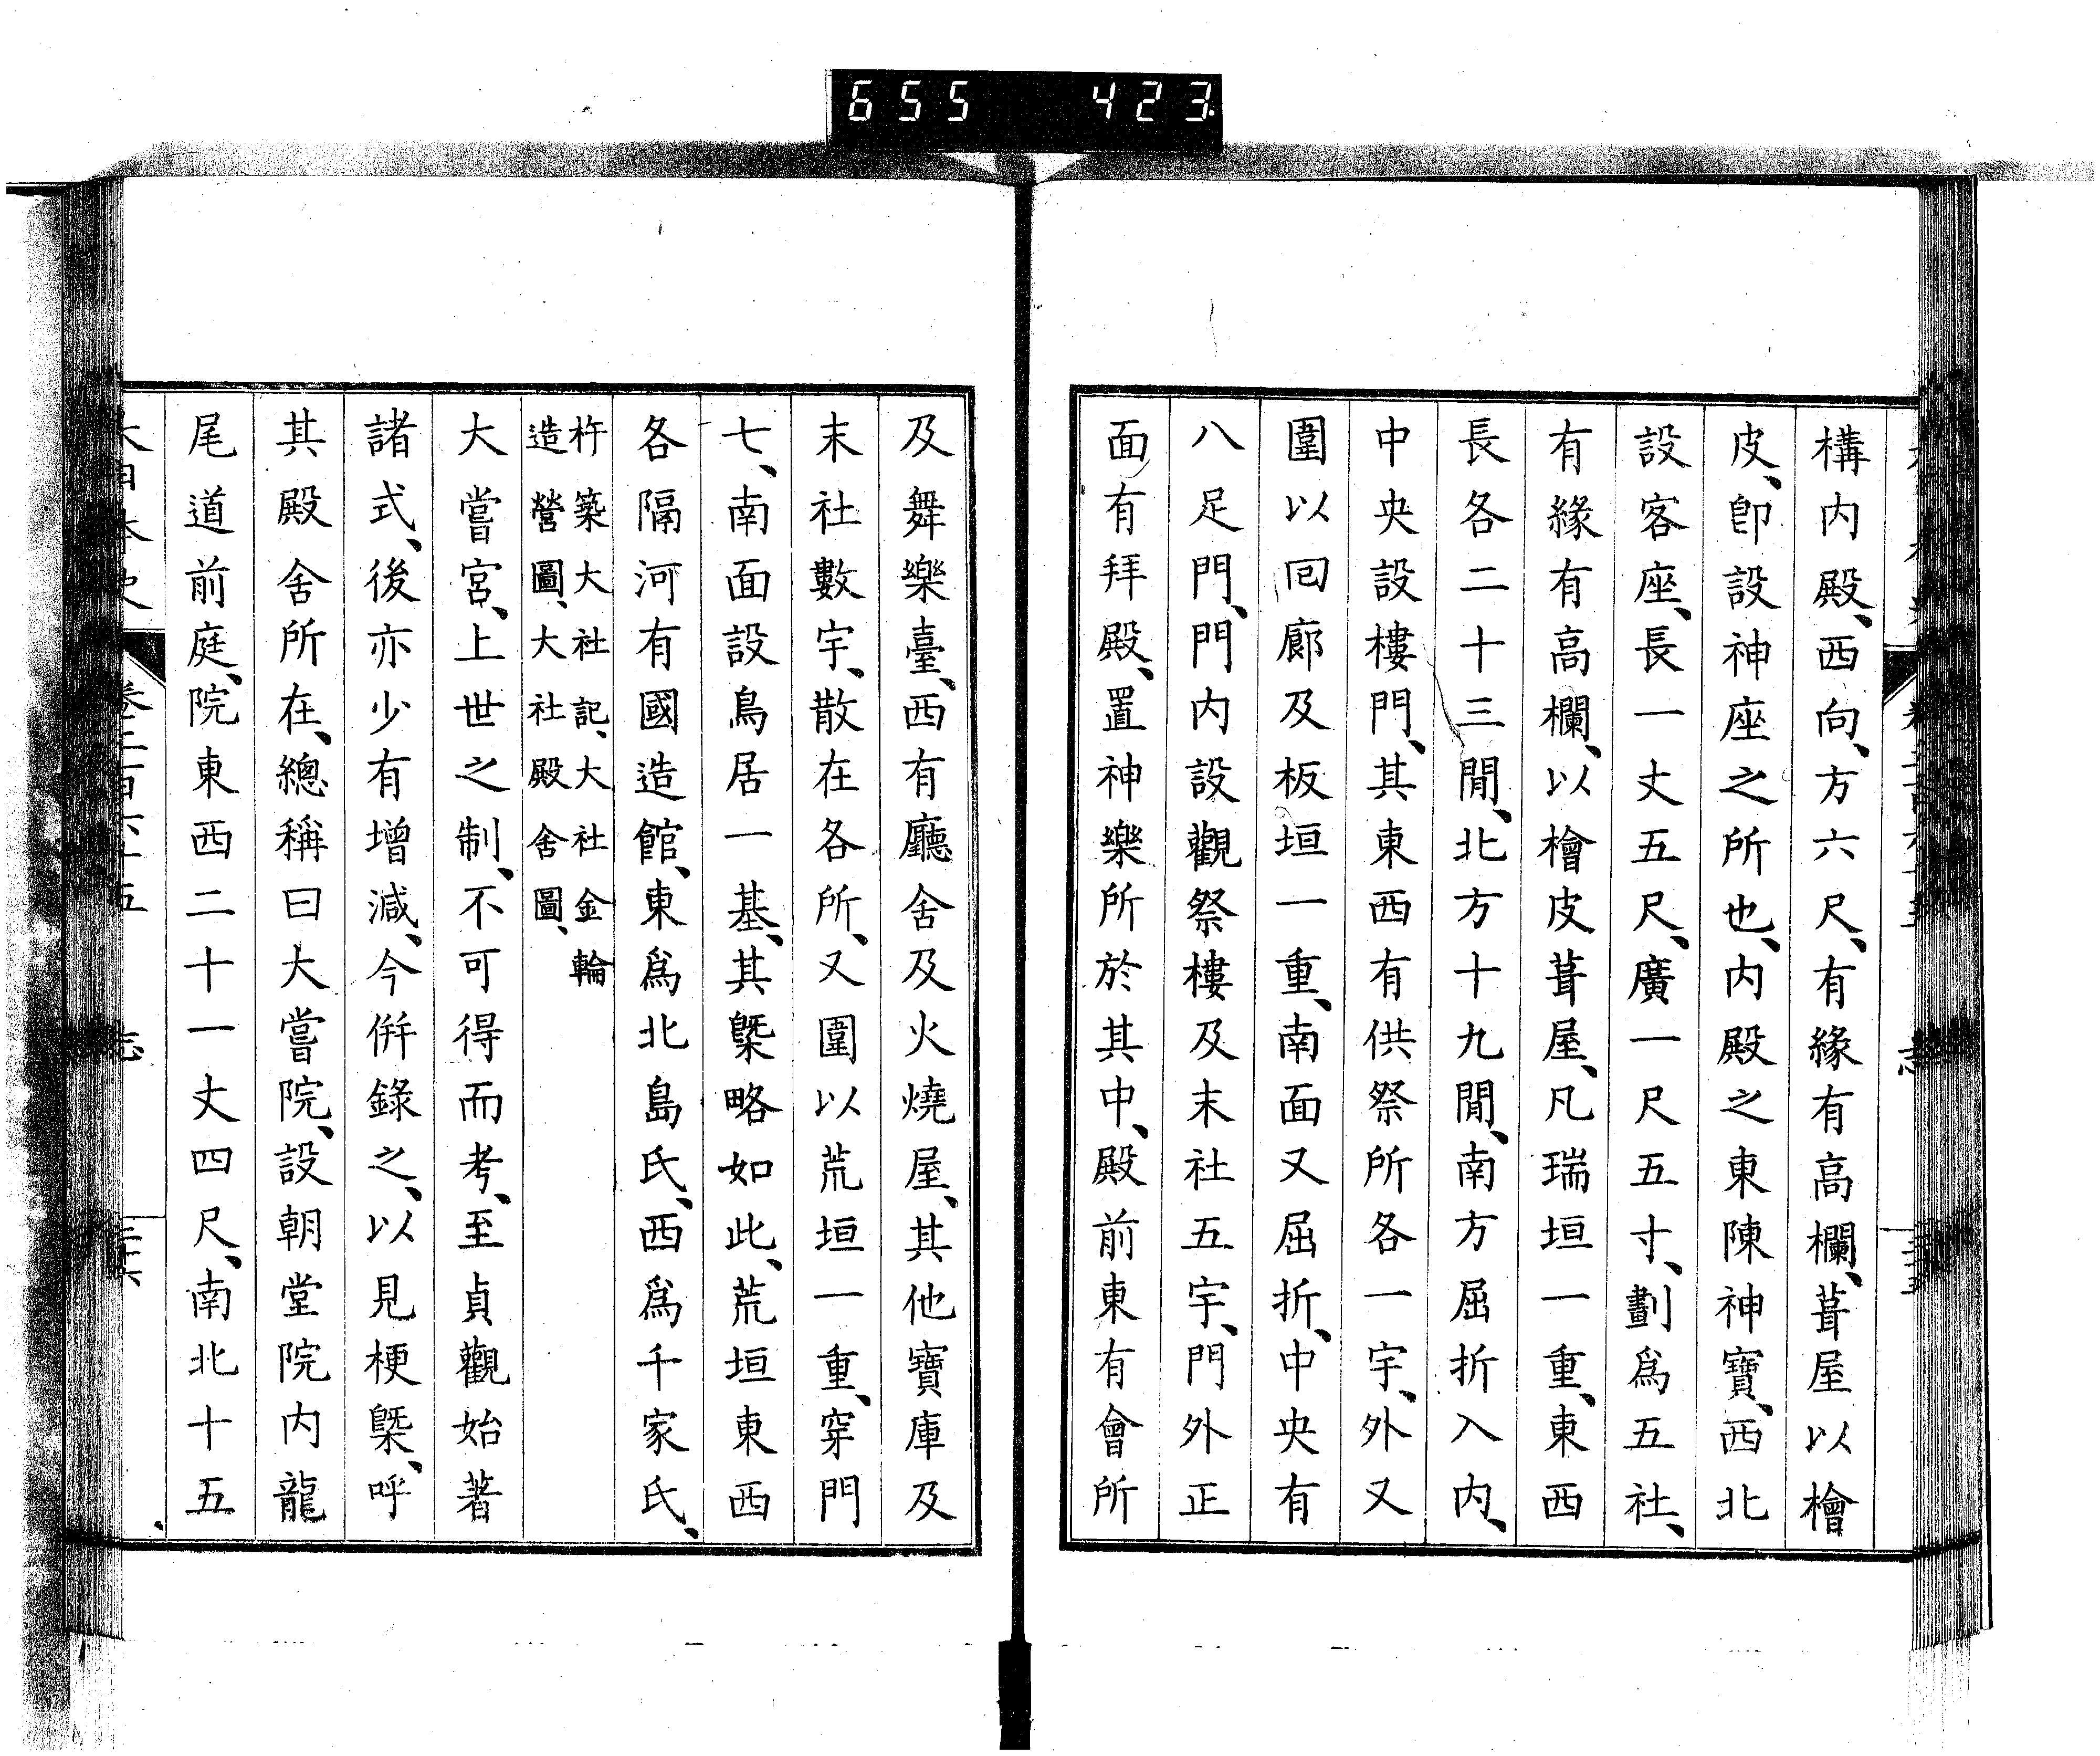 655 423
構内殿、西向、方六尺、有緣有高欄、葺屋以檜
皮、卽設神座之所也、内殿之東陳神寶、西北
設客座、長一丈五尺、廣一尺五寸、劃爲五社、
有緣有高欄、以檜皮葺屋、凡瑞垣一重、東西
長各二十三閒、北方十九閒、南方屈折入内、
中央設樓門、其東西有供祭所各一宇、外又
圍以囘廊及板垣一重、南面又屈折、中央有
八足門、門内設觀祭樓及末社五宇、門外正
面有拜殿、置神樂所於其中、殿前東有會所
及舞樂臺、西有廳舍及火燒屋、其他寶庫及
末社數宇、散在各所、又圍以荒垣一重、穿門
七、南面設鳥居一基、其槩略如此、荒垣東西
各隔河有國造館、東爲北島氏、西爲千家氏、
杵築大社記、大社金輪
造營圖、大社殿舍圖、
大嘗宮、上世之制、不可得而考、至貞觀始著
諸式、後亦少有增減、今併錄之、以見梗槩、呼
其殿舍所在、總稱曰大嘗院、設朝堂院内龍
尾道前庭、院東西二十一丈四尺、南北十五